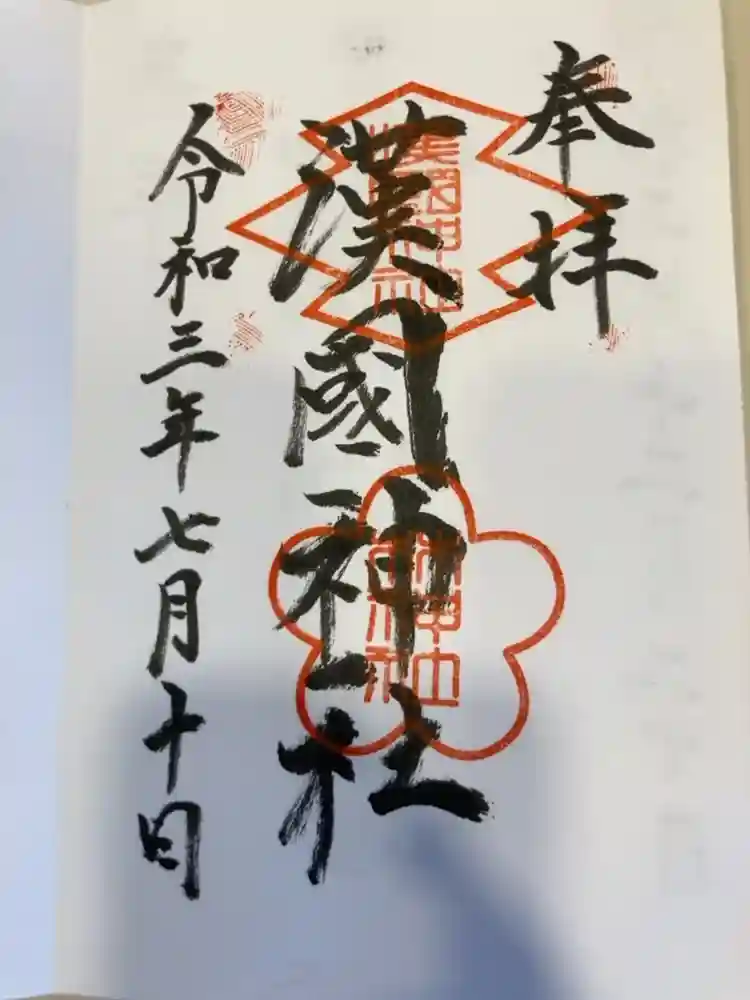 奉拝
漢國神社
令和三年七月十日
漢國神社
林神社